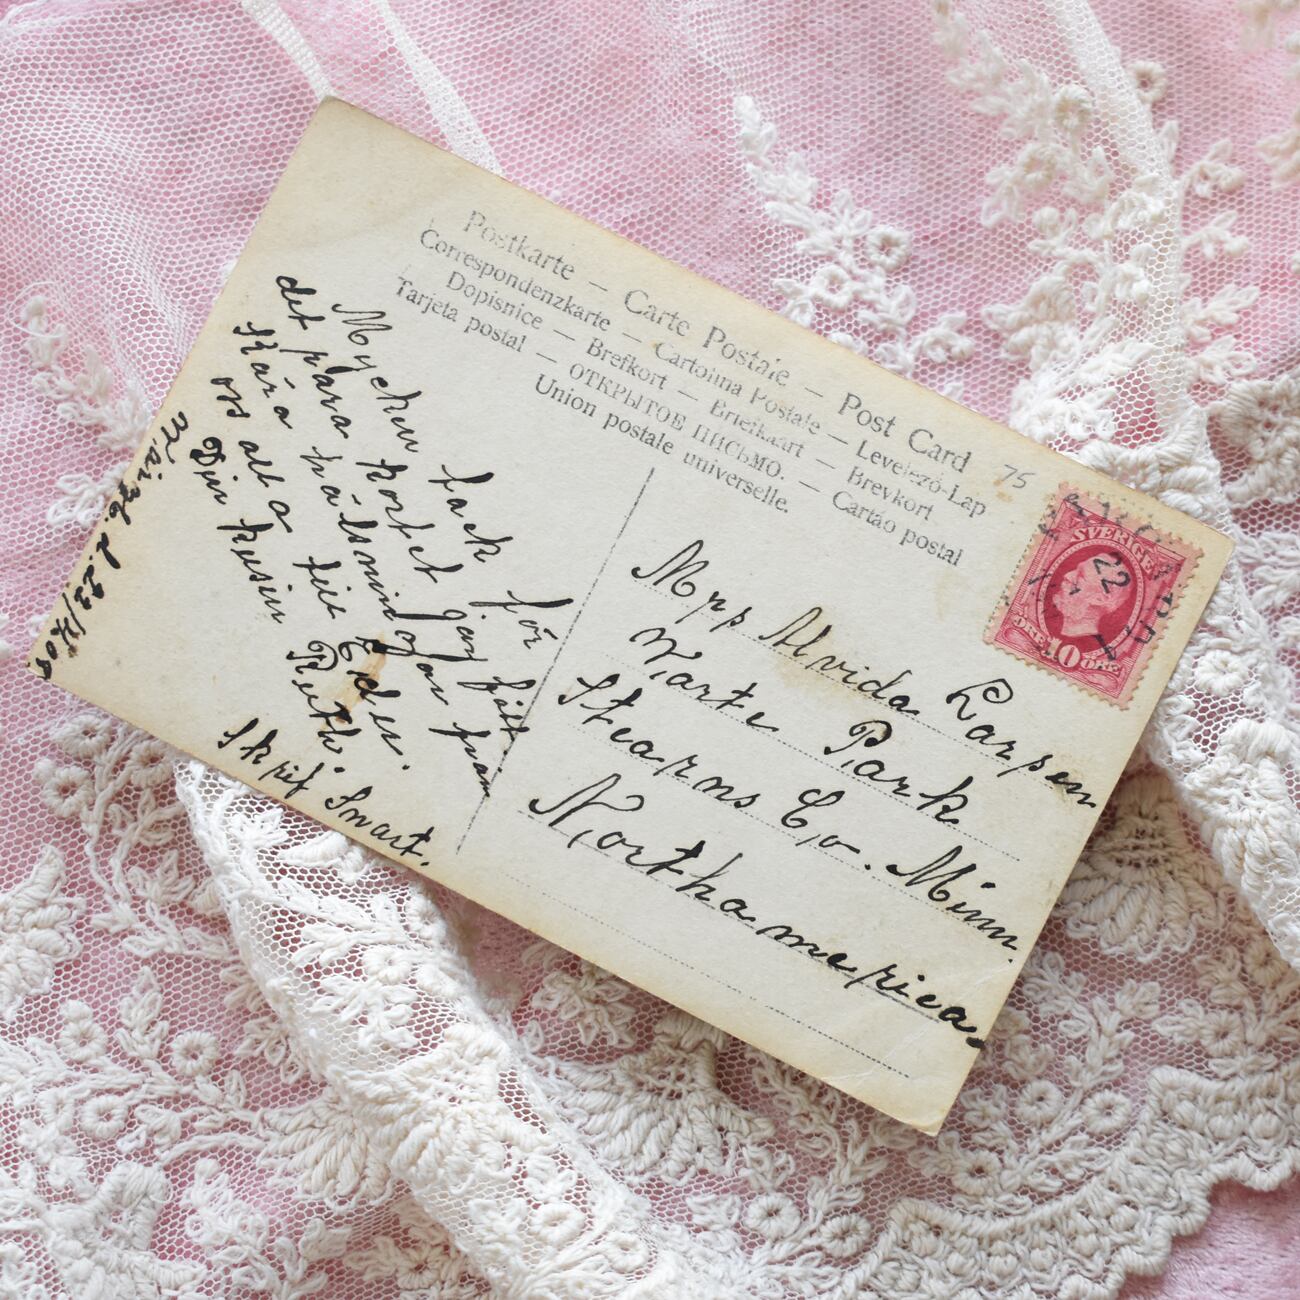 Postkarte — Carte Postale — Post Card
Correspondenzkarte — Cartolina Postale — Levelező-Lap
Dopisnice — Brefkort — Briefkaart — Brevkort
Tarjeta postal — ОТКРЫТОЕ ПИСЬМО. — Cartão postal
Union postale universelle.
75
SVERIGE
22
10
ÖRE
Mycken tack för
det kära kortet jag fått.
Kära hälsningar från
oss alla till Eder.
Din kusin Ruth.
Skrif Snart.
Mrs Alvida Larsen
Warte Park
Stearns Co. Minn.
Northamerica